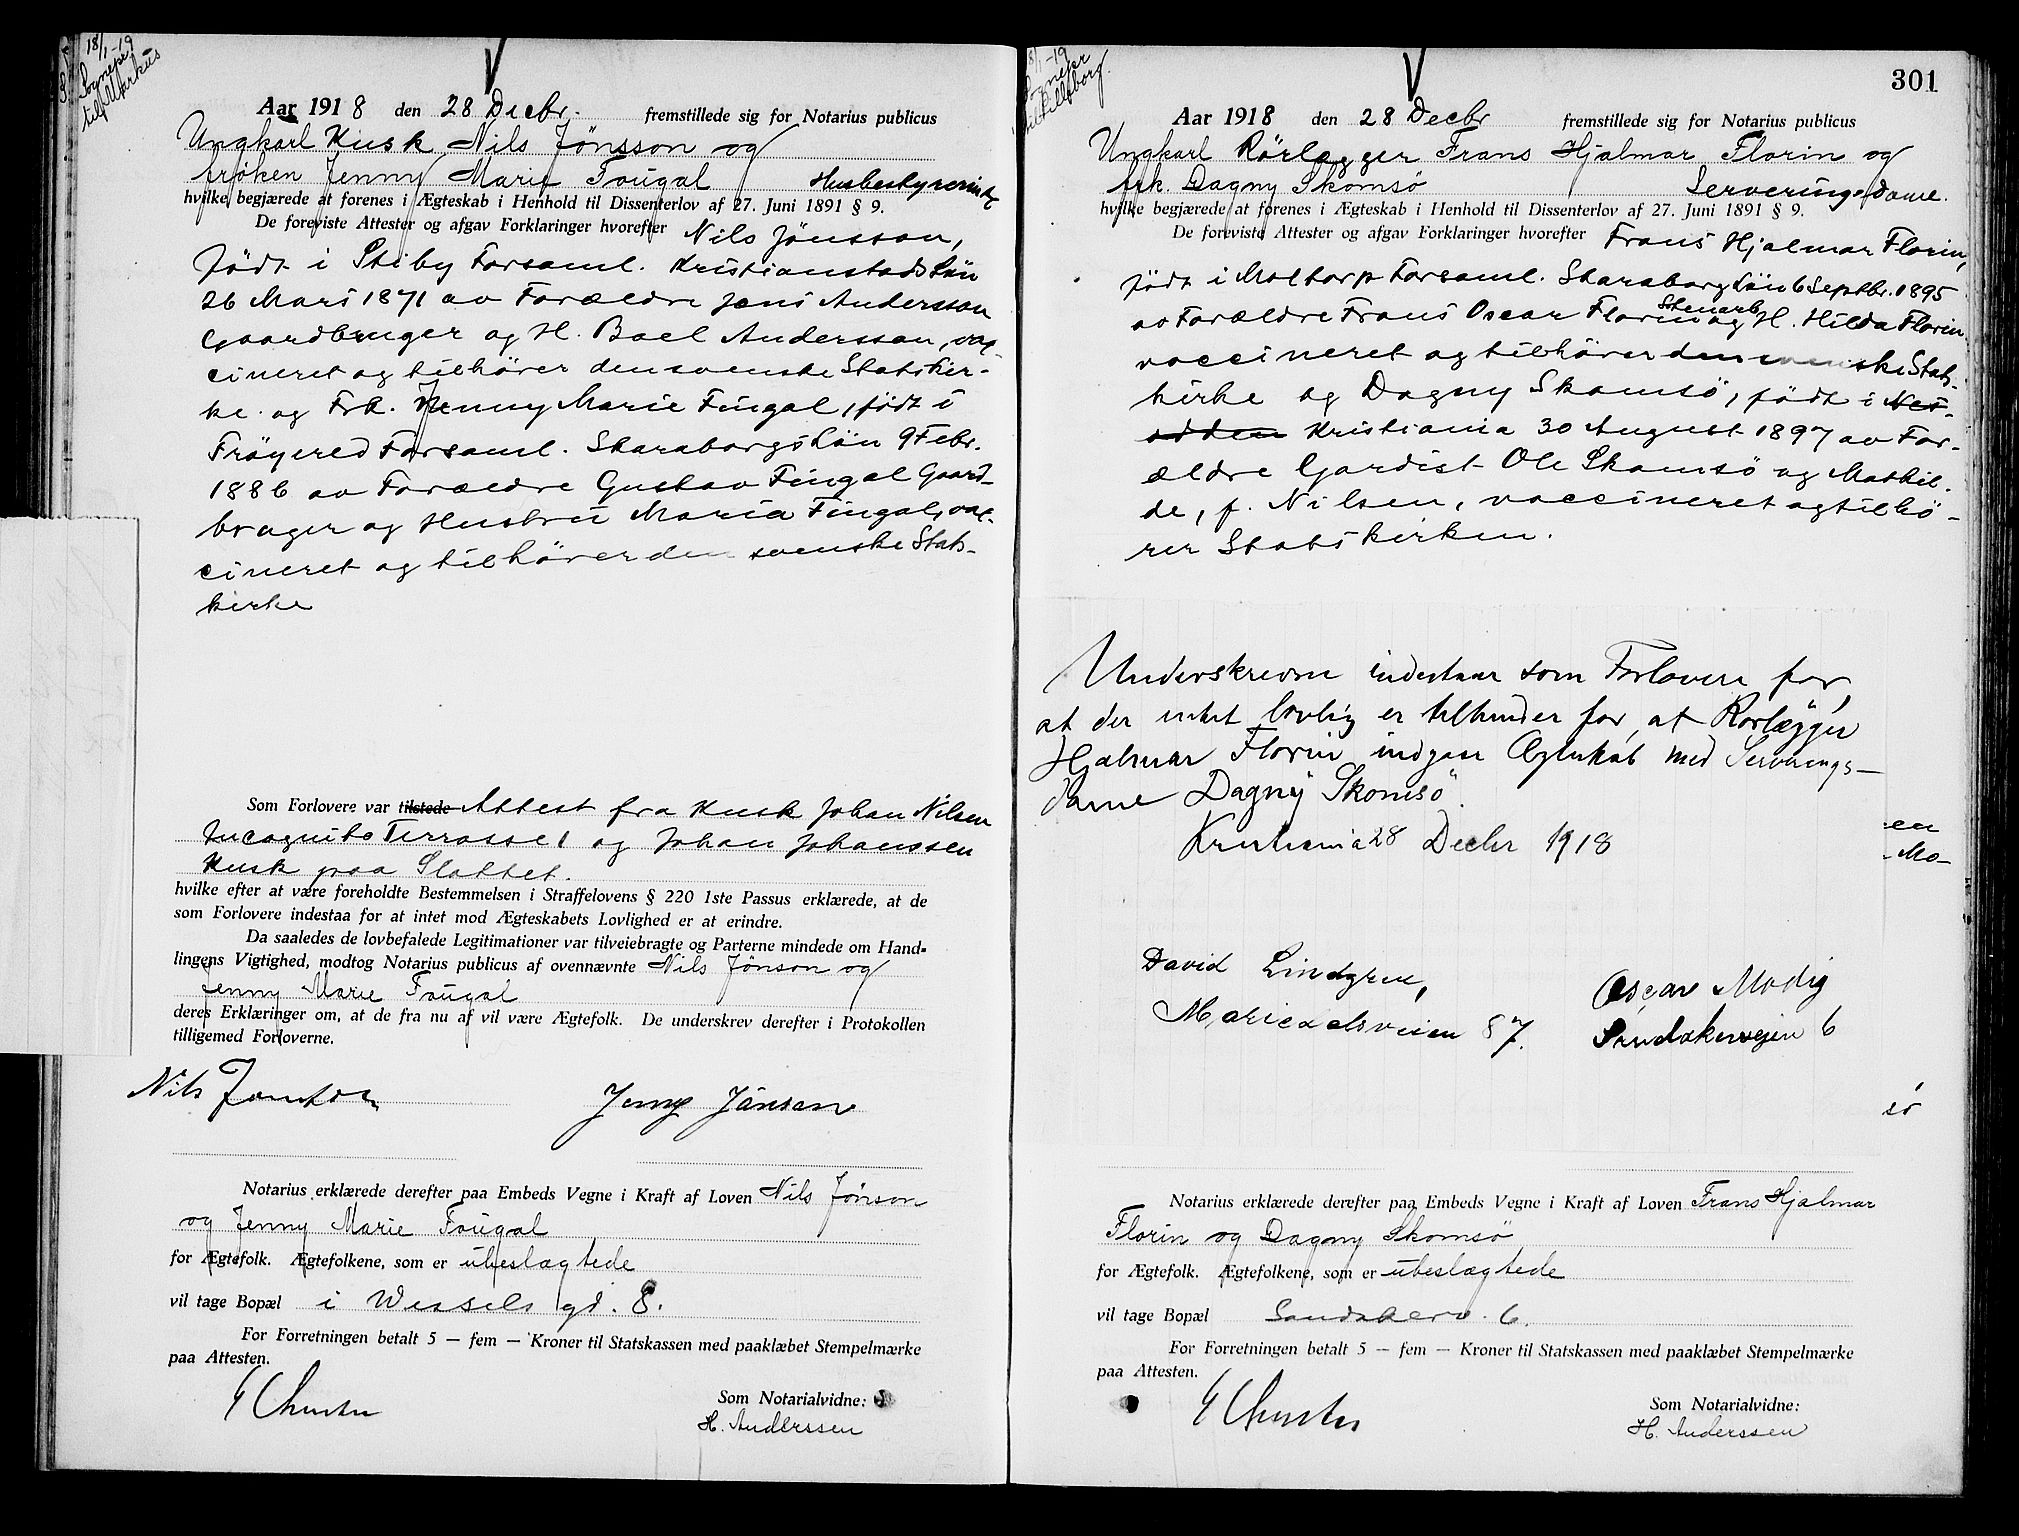 18/1-19
Sognepr
til Markus
Aar 1918 den 28 Decbr. fremstillede sig for Notarius publicus
Ungkarl Kusk Nils Jönsson og
frøken Jenny Marie Fougal Husbestyrerinde
hvilke begjærede at forenes i Ægteskab i Henhold til Dissenterlov af 27. Juni 1891 § 9.
De foreviste Attester og afgav Forklaringer hvorefter Nils Jönsson,
født i Stiby Forsaml. Kristianstads Län
26 Mars 1871 av Forældre Jöns Andersson
Gaardbruger og H. Boel Andersson, vac-
cineret og tilhører den svenske Statskir-
ke. og Frk. Jenny Marie Fingal, født i
Fröyered Forsaml. Skaraborgs Län 9 Febr.
1886 av Forældre Gustav Fingal Gaard-
bruger og Hustru Maria Fingal, vac-
cineret og tilhører den svenske Stats-
kirke
Som Forlovere var tilstede Attest fra Kusk Johan Nilsen
Incognito Terrasse 1 og Johan Johanssen
Kusk paa Slottet.
hvilke efter at være foreholdte Bestemmelsen i Straffelovens § 220 1ste Passus erklærede, at de
som Forlovere indestaa for at intet mod Ægteskabets Lovlighed er at erindre.
Da saaledes de lovbefalede Legitimationer var tilveiebragte og Parterne mindede om Hand-
lingens Vigtighed, modtog Notarius publicus af ovennævnte Nils Jönson og
Jenny Marie Fougal
deres Erklæringer om, at de fra nu af vil være Ægtefolk. De underskrev derefter i Protokollen
tilligemed Forloverne.
Nils Jönsson Jenny Jönsen
Notarius erklærede derefter paa Embeds Vegne i Kraft af Loven Nils Jönson
og Jenny Marie Fougal
for Ægtefolk. Ægtefolkene, som er ubeslægtede
vil tage Bopæl i Wessels gd. 8.
For Forretningen betalt 5 — fem — Kroner til Statskassen med paaklæbet Stempelmærke
paa Attesten.
Som Notarialvidne:
H. Anderssen
301
8/1-19
Aar 1918 den 28 Decbr fremstillede sig for Notarius publicus
Ungkarl Rörlægger Frans Hjalmar Florin og
frk. Dagny Skomsö Serveringsdame.
hvilke begjærede at forenes i Ægteskab i Henhold til Dissenterlov af 27. Juni 1891 § 9.
De foreviste Attester og afgav Forklaringer hvorefter Frans Hjalmar Florin,
født i Moltorp Forsaml. Skaraborg Län 6 Septbr. 1895
av Forældre Frans Oscar Florin Stenarb. og H. Hilda Florin
vaccineret og tilhører den svenske Stats-
kirke og Dagny Skomsö, født i Nes-
odden Kristiania 30 August 1897 av For-
ældre Gardist Ole Skomsö og Mathil-
de, f. Nilsen, vaccineret og tilhö-
rer Statskirken.
Underskrevne indestaar som Forlovere for,
at der intet lovlig er tilhinder for, at Rørlægger
Hjalmar Florin indgaar Ægteskab med Serverings-
dame Dagny Skomsö.
Kristiania 28 Decbr 1918
en
- Mo-
David Lindgren, Oscar Modig
Maridalsveien 87. Sandakerveien 6
sö
Notarius erklærede derefter paa Embeds Vegne i Kraft af Loven Frans Hjalmar
Florin og Dagny Skomsö
for Ægtefolk. Ægtefolkene, som er ubeslægtede
vil tage Bopæl Sandakerv. 6.
For Forretningen betalt 5 — fem — Kroner til Statskassen med paaklæbet Stempelmærke
paa Attesten.
Som Notarialvidne:
H. Anderssen